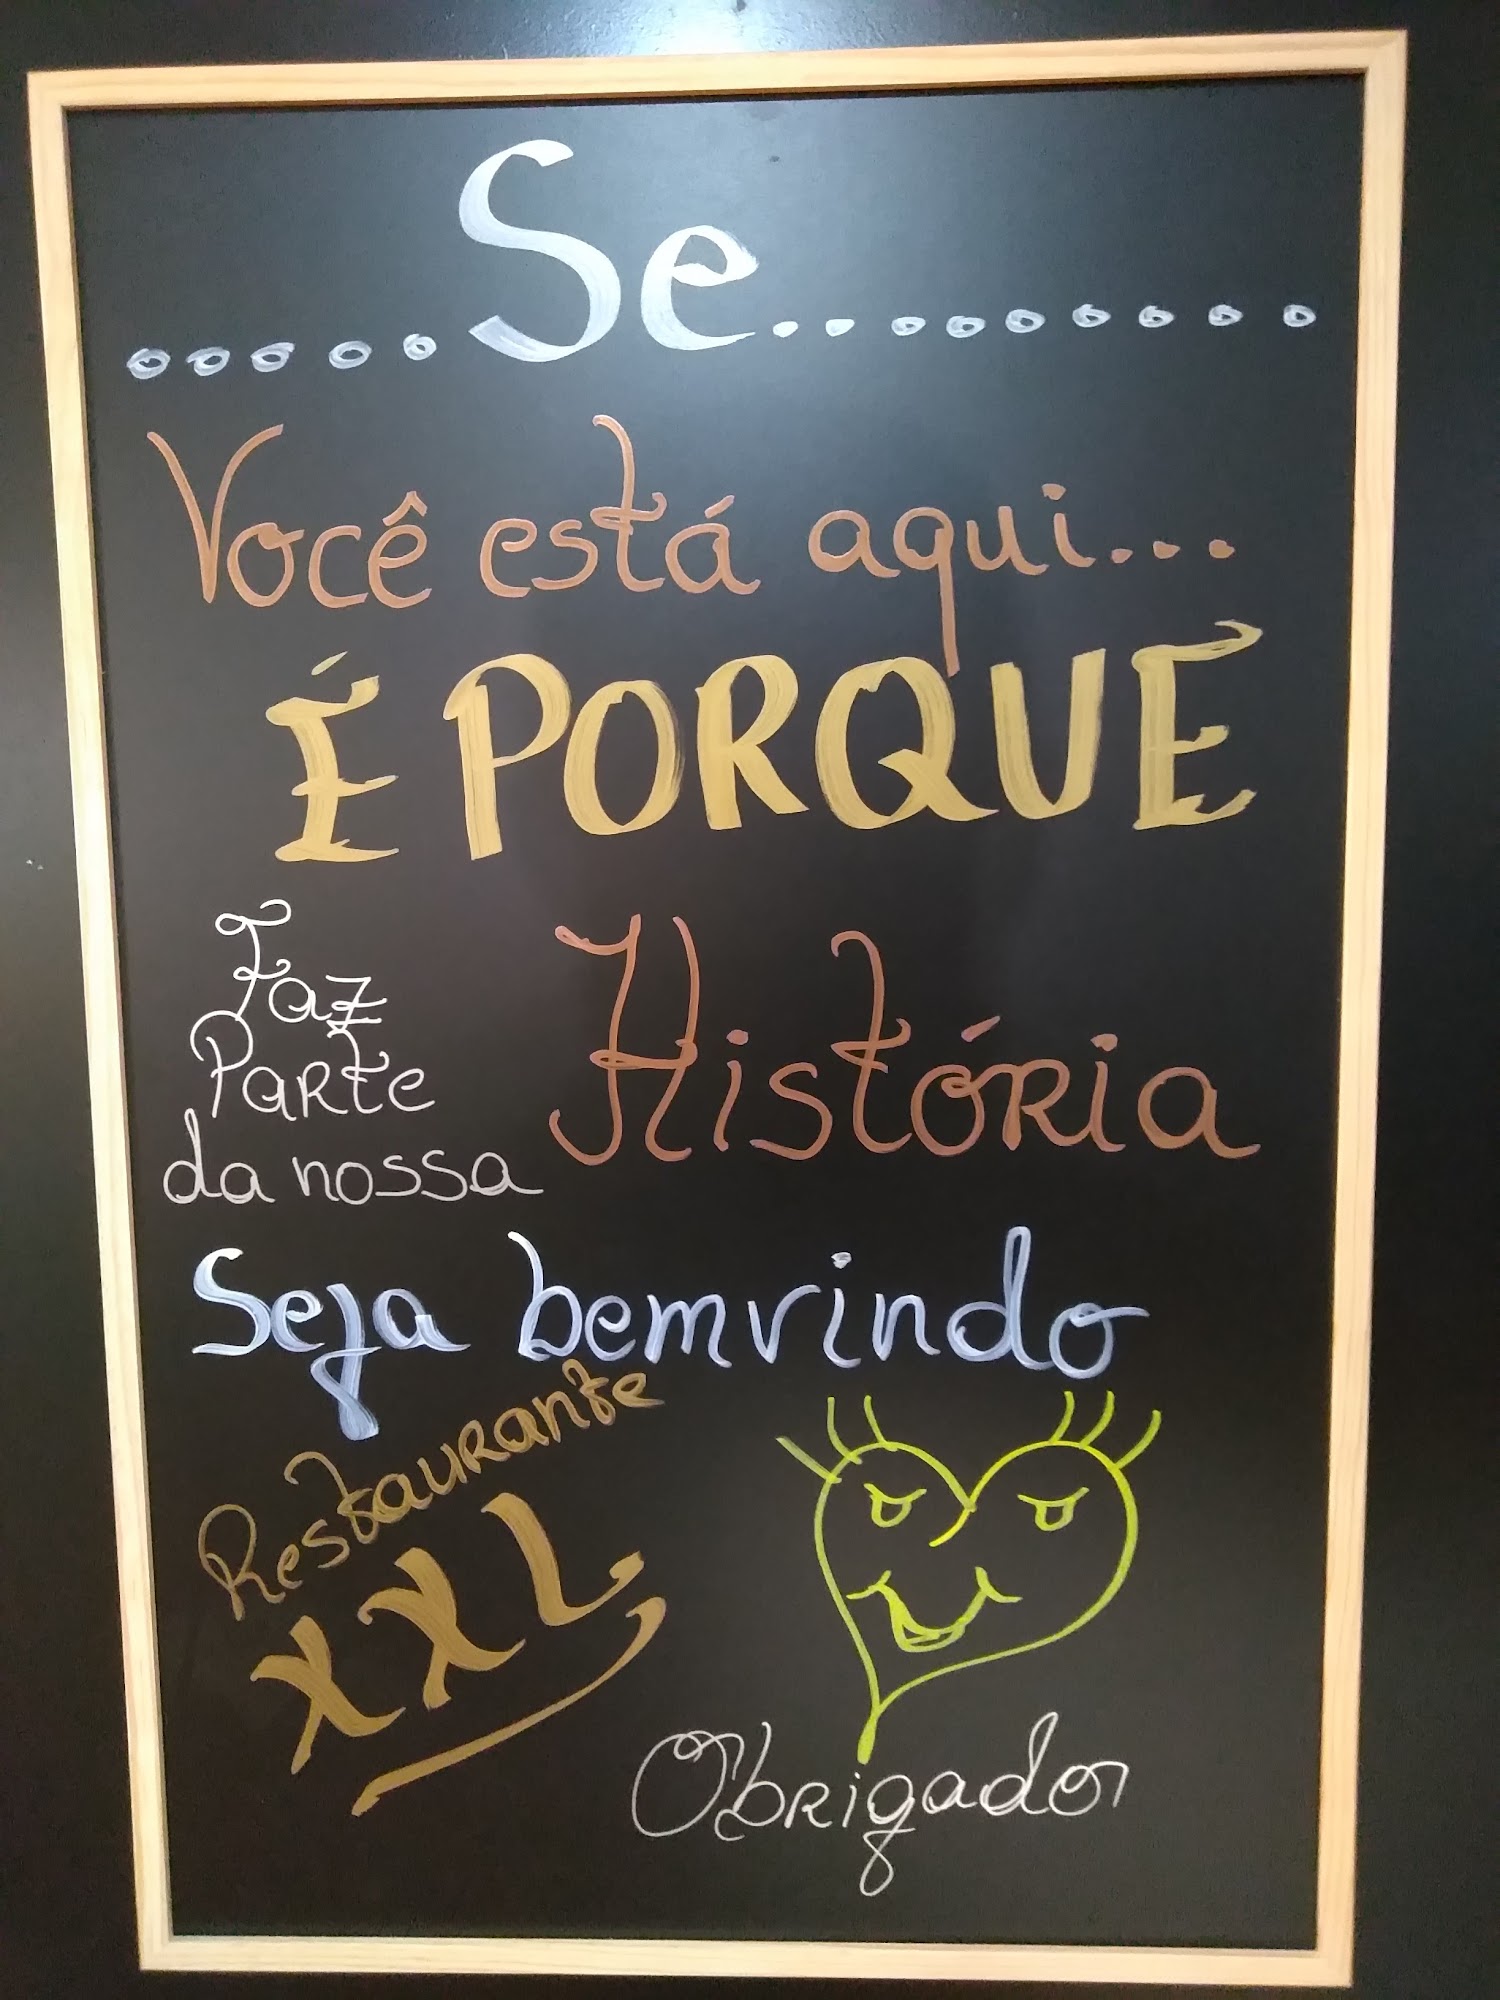 .....Se.........
Você está aqui...
É PORQUE
Faz
Parte
da nossa
História
Seja bemvindo
Restaurante
XXL
Obrigado